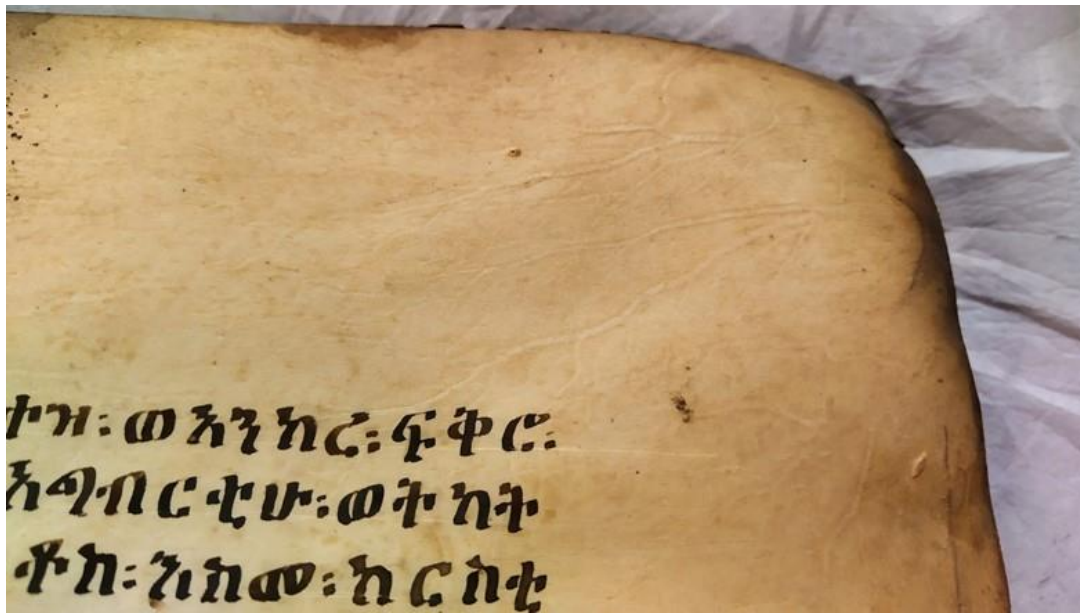 ዝ፡ወአንከረ፡ፍቅሮ፡
እግብርቲሁ፡ወትካት
ቶከ፡እስመ፡ክርስቲ